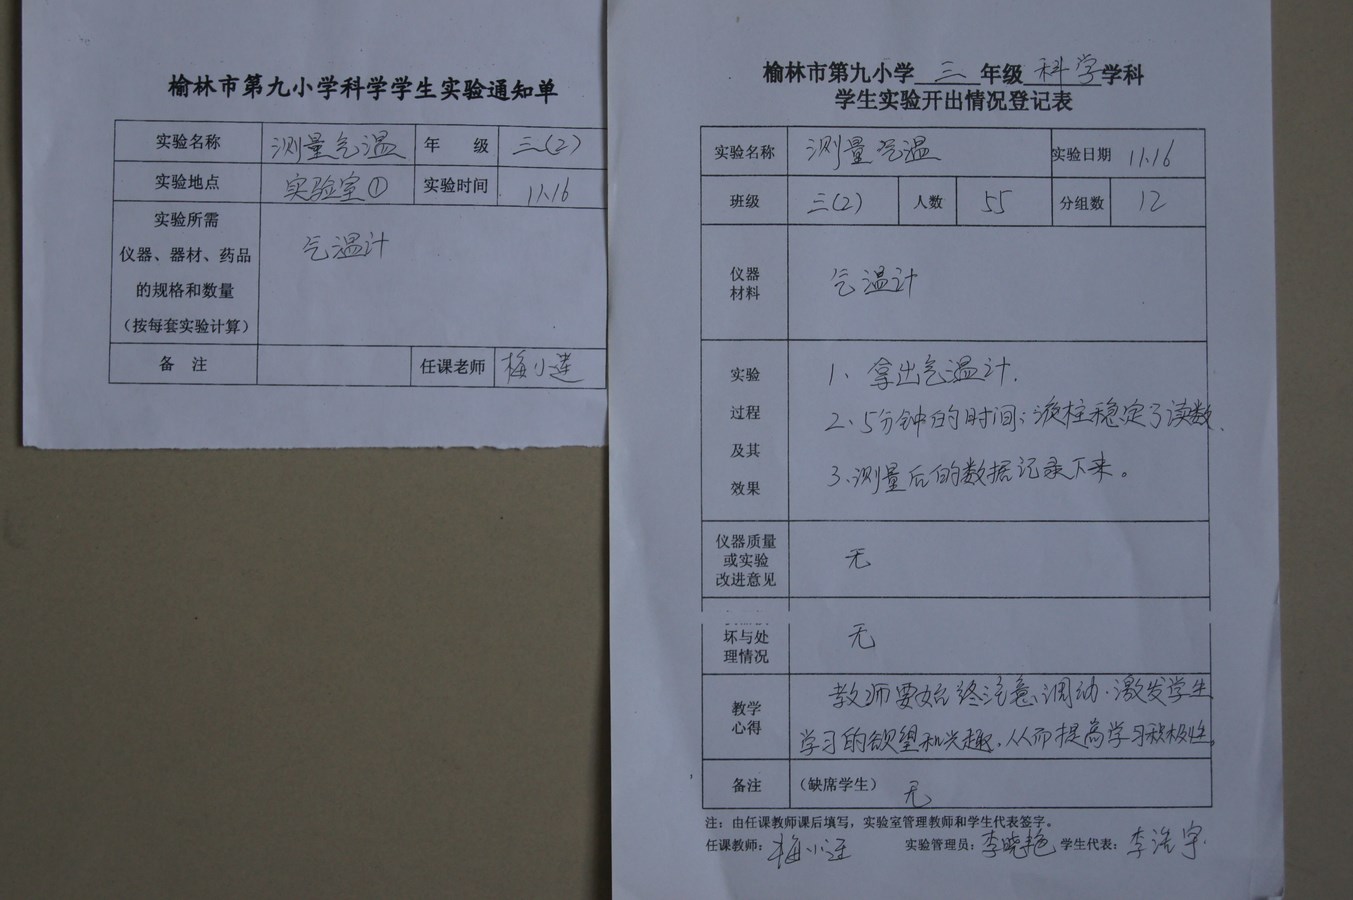 榆林市第九小学科学学生实验通知单
实验名称 测量气温 年 级 三(2)
实验地点 实验室① 实验时间 11.16
实验所需
仪器、器材、药品
的规格和数量
（按每套实验计算）
气温计
备 注 任课老师 梅小莲
榆林市第九小学 三 年级 科学 学科
学生实验开出情况登记表
实验名称 测量气温 实验日期 11.16
班级 三(2) 人数 55 分组数 12
仪器
材料
气温计
实验
过程
及其
效果
1、拿出气温计.
2、5分钟的时间;液柱稳定了读数.
3、测量后的数据记录下来。
仪器质量
或实验
改进意见
无
坏与处
理情况
无
教学
心得
教师要始终注意调动.激发学生
学习的欲望和兴趣.从而提高学习积极性。
备注 （缺席学生） 无
注：由任课教师课后填写，实验室管理教师和学生代表签字。
任课教师： 梅小莲 实验管理员： 李晓艳 学生代表： 李浩宇